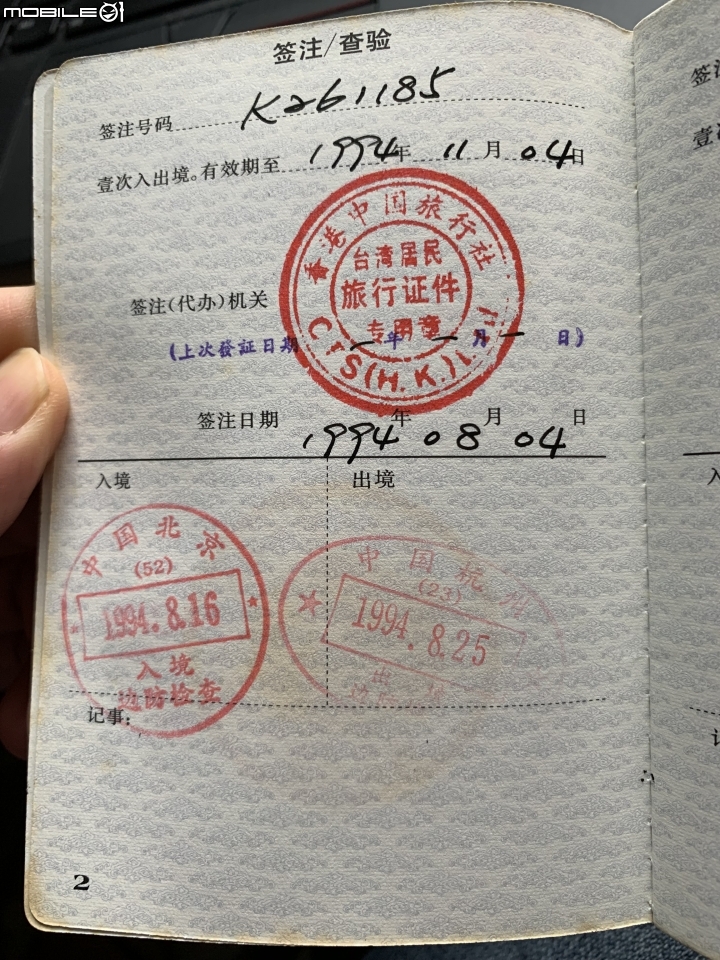 MOBILE01
签注/查验
签注号码 K261185
壹次入出境。有效期至 1994年 11月 04日
香港中国旅行社
台湾居民
旅行证件
专用章
CTS(H.K.)LTD
签注(代办)机关
(上次發証日期 一年一月一日)
签注日期 1994年 08月 04日
入境
出境
中国北京
(52)
1994.8.16
入境
边防检查
中国杭州
(23)
1994.8.25
出境
记事:
2